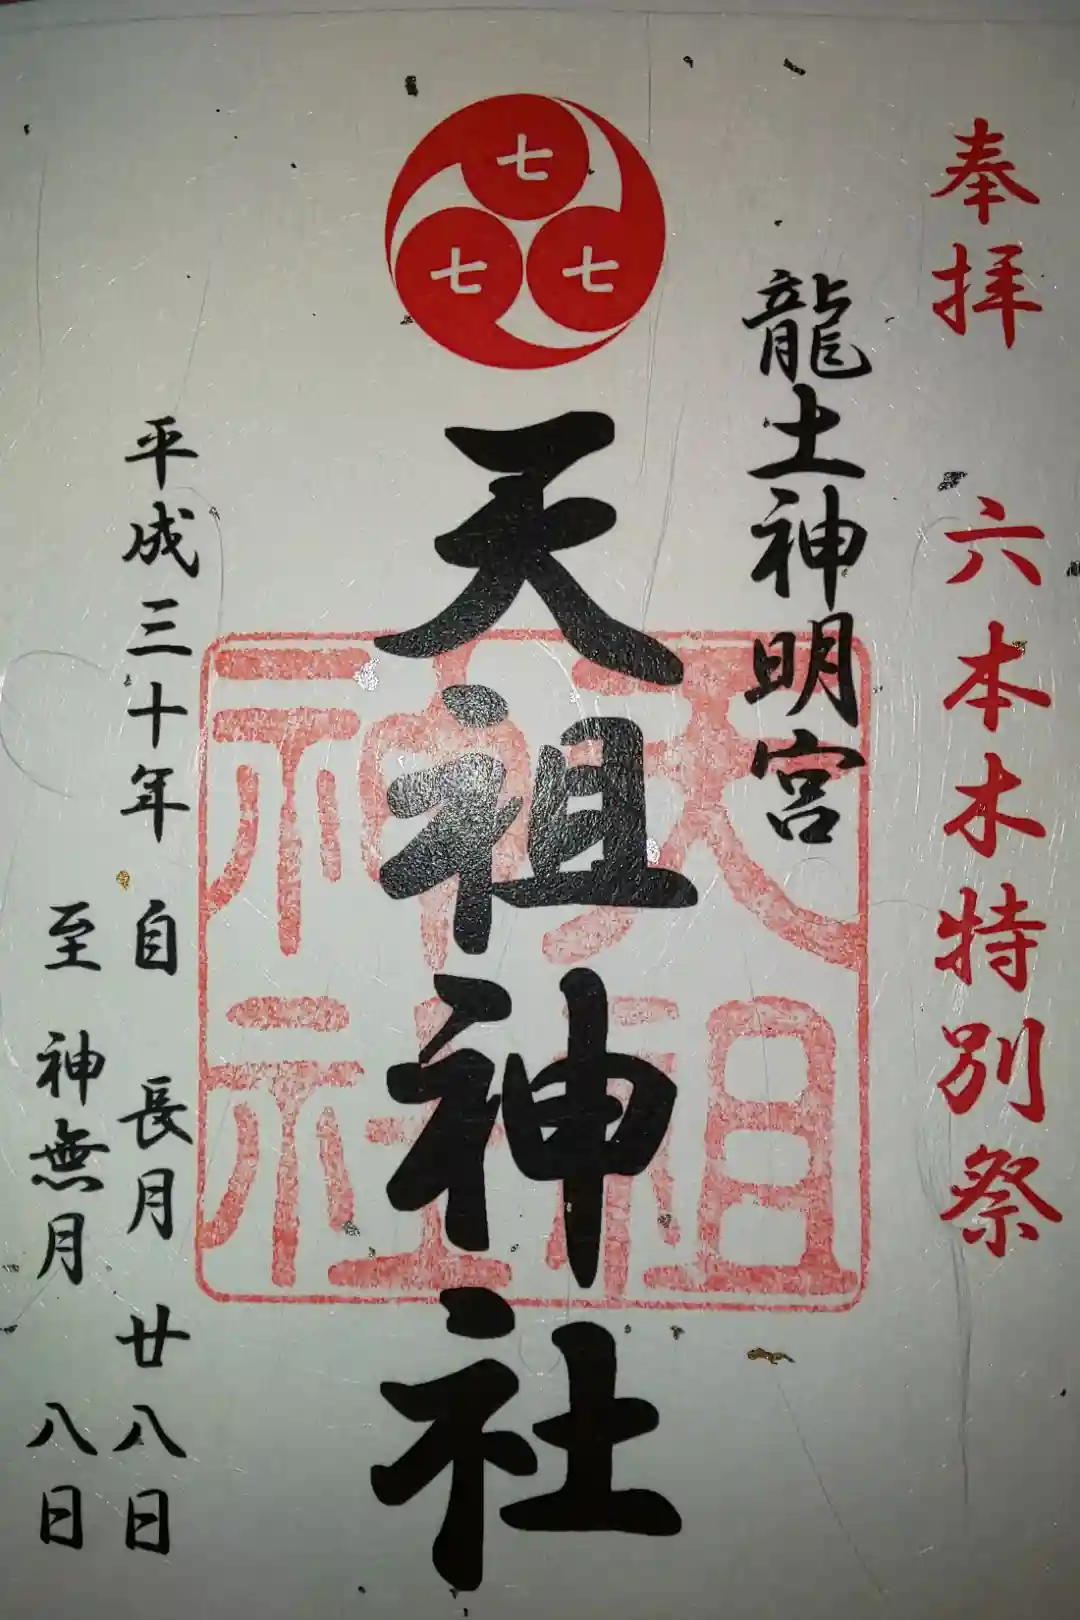 奉拝　六本木特別祭
龍土神明宮
七
七
七
天祖神社
天祖
神社
平成三十年　自　長月　廿八日
至　神無月　八日